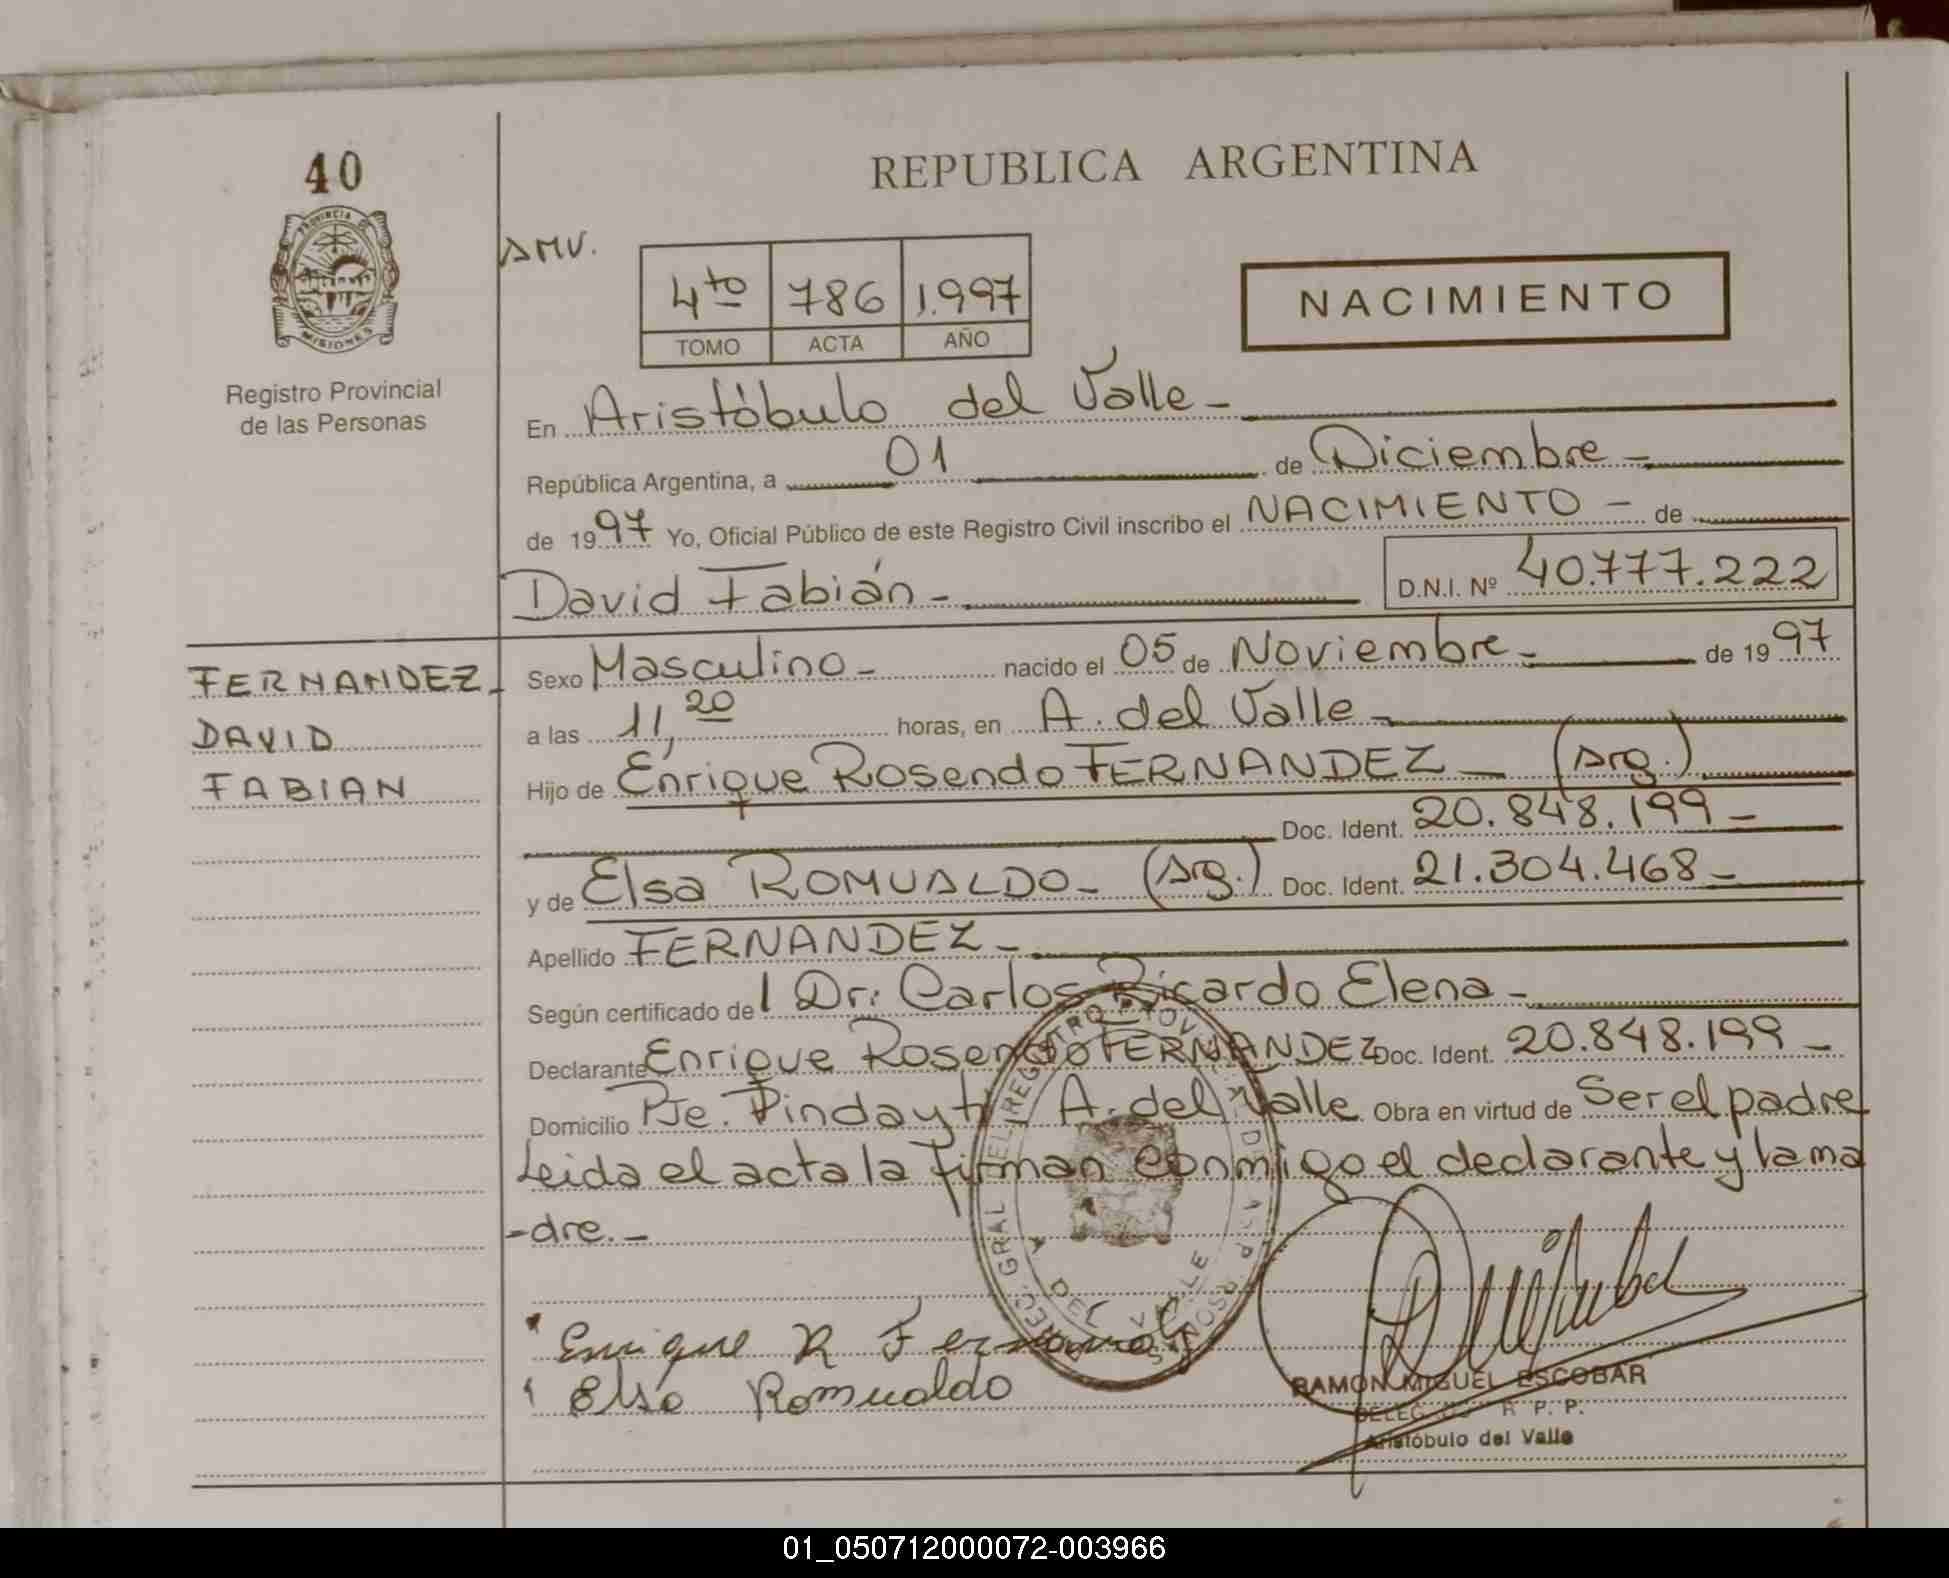 40
PROVINCIA DE
MISIONES
Registro Provincial
de las Personas
REPUBLICA ARGENTINA
AMV.
4to 786 1.997
TOMO ACTA AÑO
NACIMIENTO
En Aristóbulo del Valle -
República Argentina, a 01 de Diciembre -
de 1997 Yo, Oficial Público de este Registro Civil inscribo el NACIMIENTO - de
David Fabián - D.N.I. Nº 40.777.222
FERNANDEZ -
DAVID
FABIAN
Sexo Masculino - nacido el 05 de Noviembre - de 1997
a las 11,20 horas, en A. del Valle -
Hijo de Enrique Rosendo FERNANDEZ - (Arg.)
Doc. Ident. 20.848.199 -
y de Elsa ROMUALDO - (Arg.) Doc. Ident. 21.304.468 -
Apellido FERNANDEZ -
Según certificado de l Dr: Carlos Ricardo Elena -
Declarante Enrique Rosendo FERNANDEZ Doc. Ident. 20.848.199 -
Domicilio Pje. Pindayti A. del Valle Obra en virtud de Ser el padre
Leida el acta la firman conmigo el declarante y la ma
-dre. -
Enrique R Fernandez
Elsa Romualdo
RAMON MIGUEL ESCOBAR
R. P. P.
Aristóbulo del Valle
01_050712000072-003966